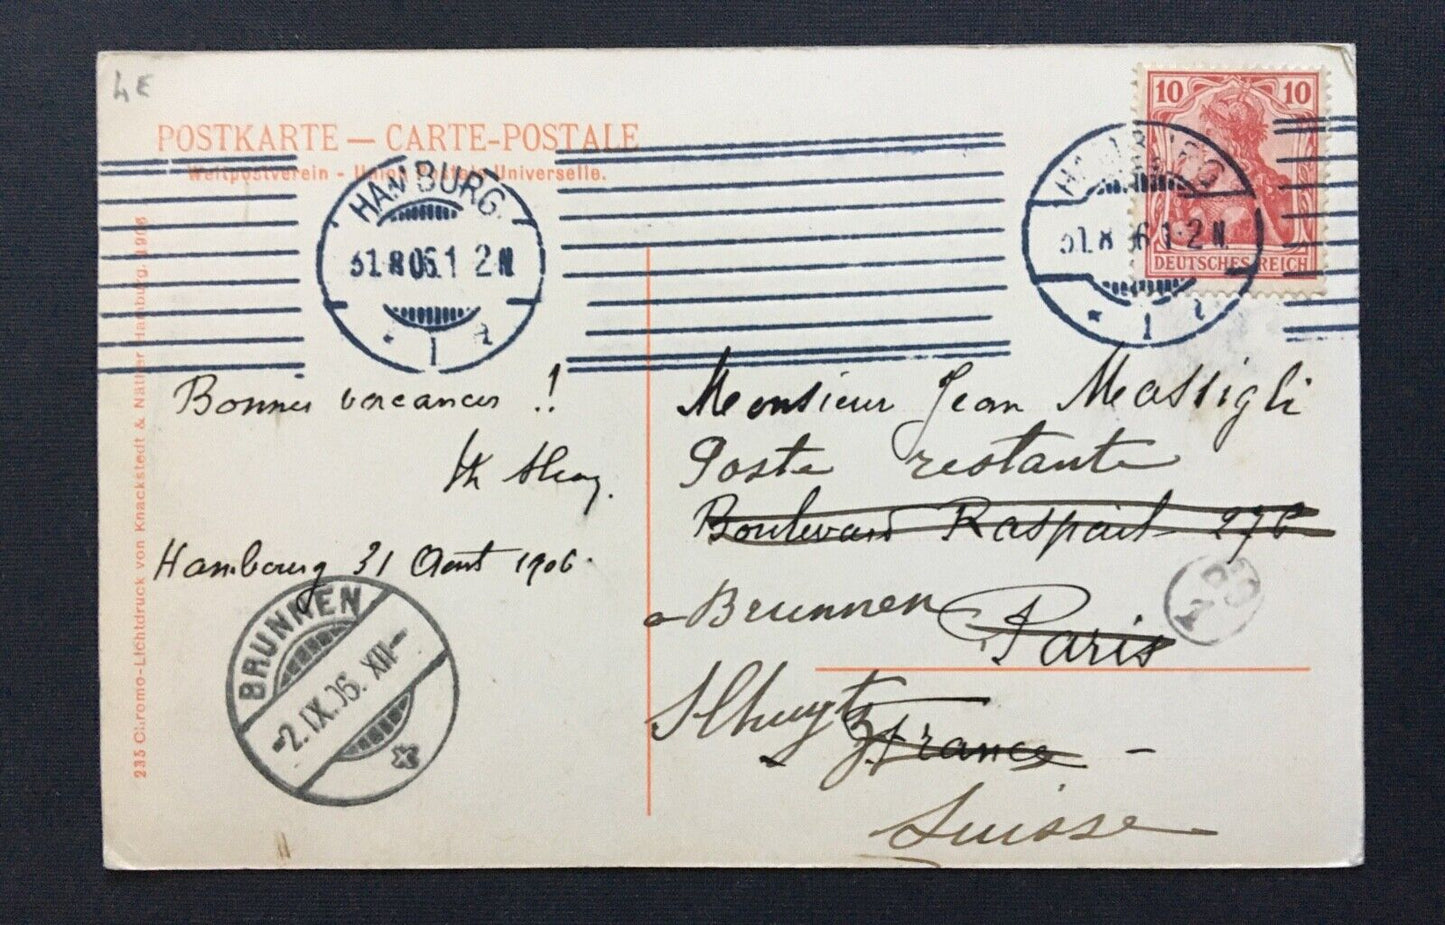 4E
POSTKARTE — CARTE-POSTALE
Weltpostverein - Union Postale Universelle.
HAMBURG.
31.8.06.1-2N
* 1 t
HAMBURG
31.8.06.1-2N
* 1 t
10 10
DEUTSCHES REICH
Bonnes vacances !!
Hambourg 31 Aout 1906.
BRUNNEN
-2.IX.06. XII-
Monsieur Jean Massigli
Poste restante
Boulevard Raspail 276
Brunnen
Paris
Schwytz
France
Suisse
235 Chromo-Lichtdruck von Knackstedt & Näther Hamburg. 1906